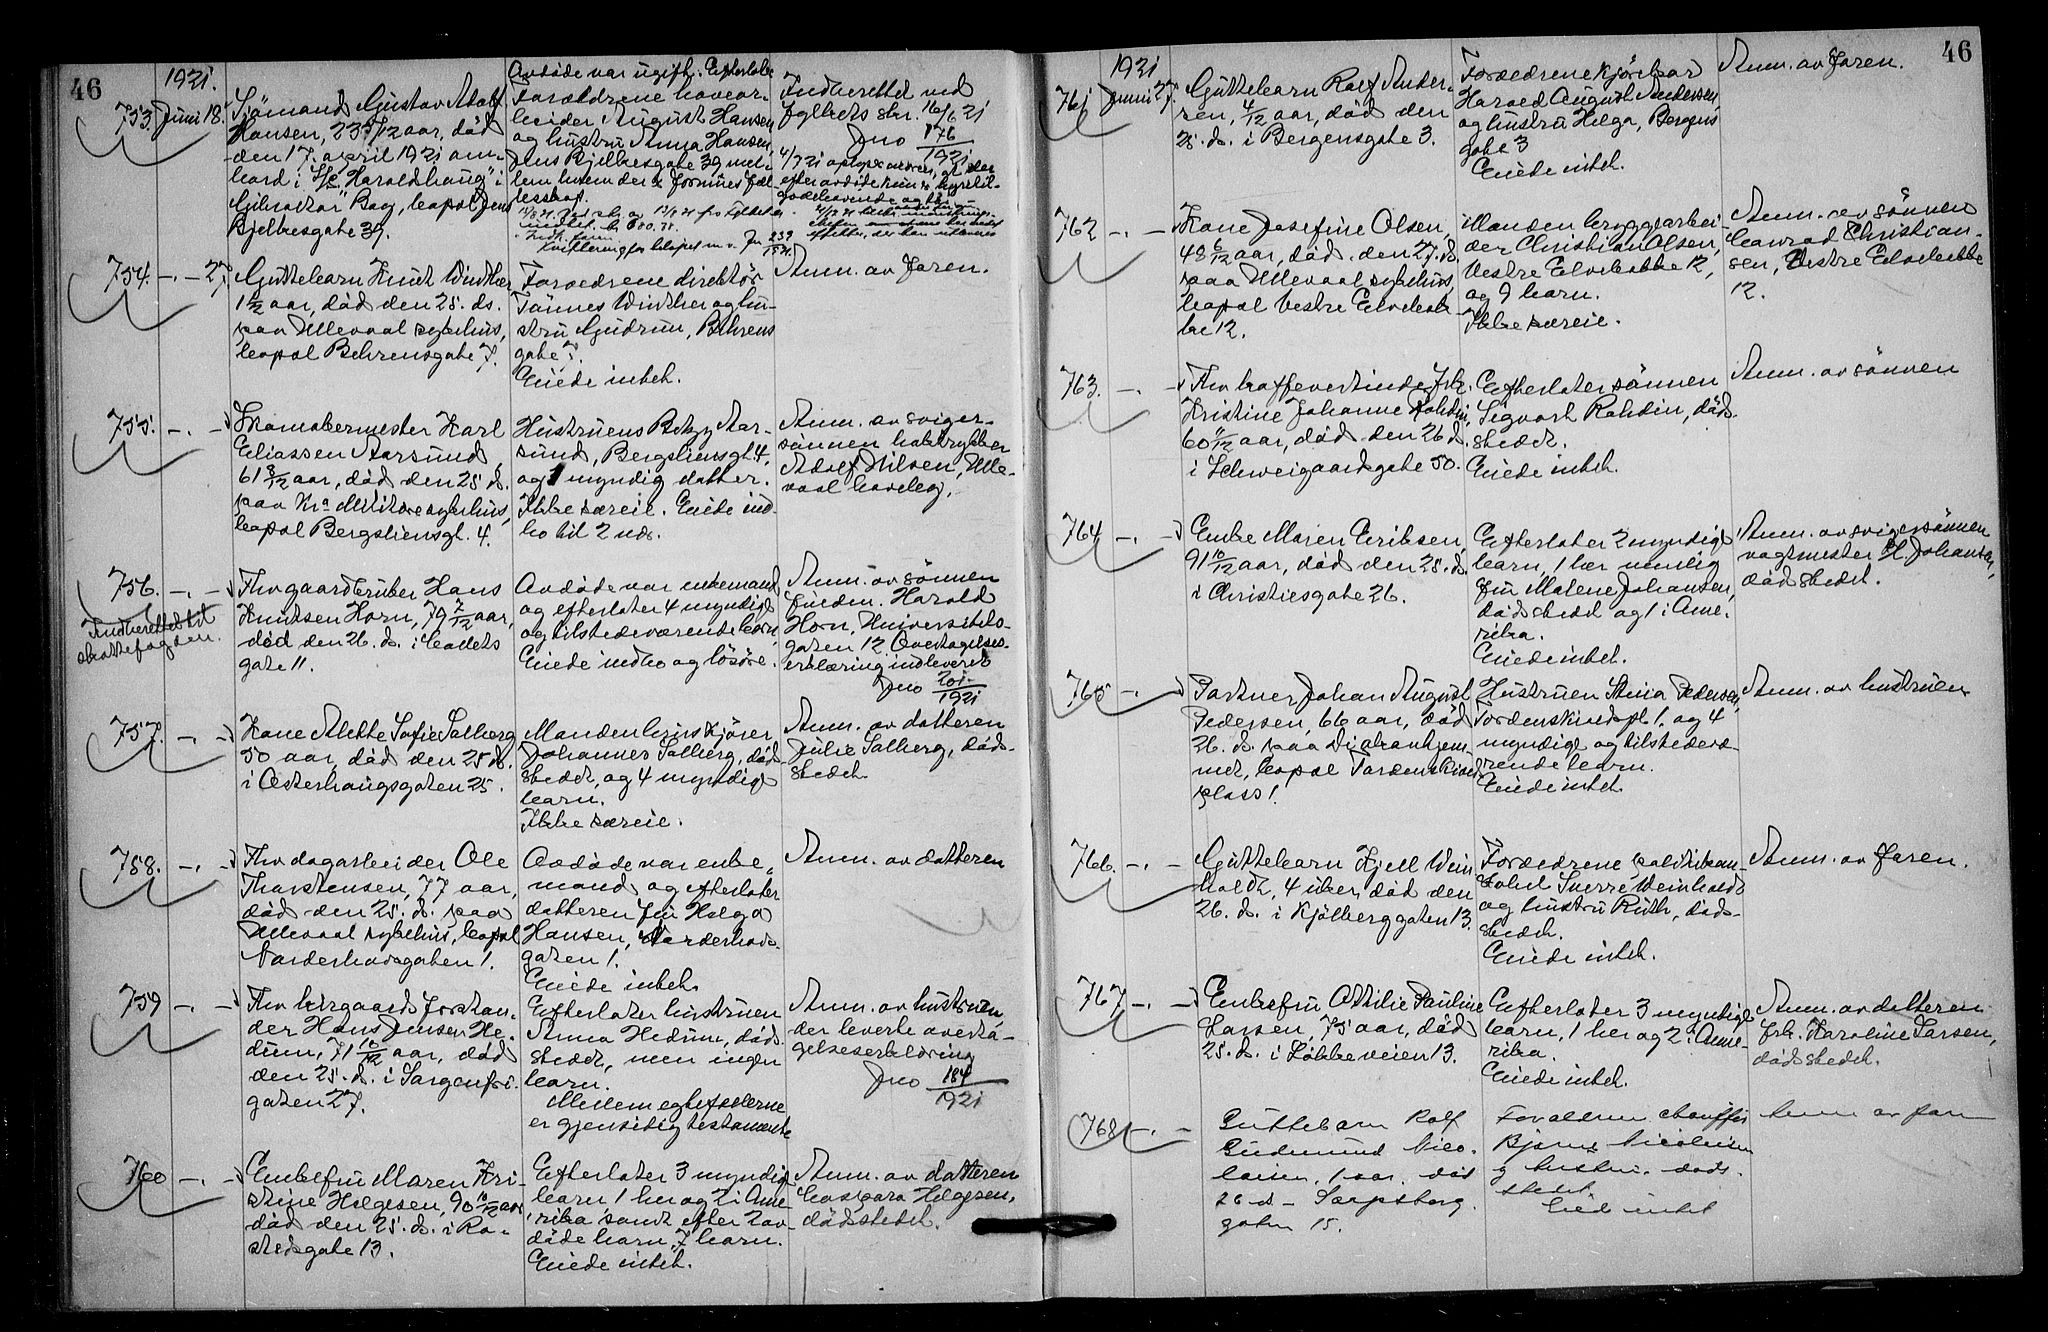 46
1921.
753. Juni 18.
Sjömand Gustav Adolf
Hansen, 23 aar, död
den 17. april 1921 om-
bord i S/S "Haraldhaug" i
Gibraltar Bay, bopæl Jens
Bjelkesgate 39.
Avdöde var ugift. Efterlater
Forældrene havear-
beider August Hansen
og hustru Anna Hansen,
Jens Bjelkesgate 39, mel-
lem hvem der er formues fæl-
lesskap.
Indberettet ved
fylkets skr. 16/6 21
Jno 176/1921
754. -"- 27.
Guttebarn Knut Winther
1 aar, död den 25. ds.
paa Ullevaal sykehus,
bopæl Behrensgate 7.
Forældrene direktör
Tönnes Winther og hu-
stru Gudrun, Behrens
gate 7.
Eiede intet.
Anm. av faren.
755. -"-
Skomakermester Karl
Eliassen Aarsund
61 8/12 aar, död den 25 d.
paa Kra Militære sykehus,
bopæl Bergsliensgt. 4.
Hustruens Betzy Aar-
sund, Bergsliensgt. 4,
og 1 myndig datter.
Ikke særeie. Eiede ind-
bo til 2 vær.
Anm. av sviger-
sönnen boktrykker
Adolf Nilsen, Ulle-
vaal haveby.
756. -"-
Indberettet til
skattefogden.
Fhv gaardbruker Hans
Knutsen Horn, 79 7/12 aar,
död den 26. ds. i Cadets
gate 11.
Avdöde var enkemand
og efterlater 4 myndige
og tilstedeværende barn.
Eiede indbo og lösöre.
Anm. av sönnen
Harald
Horn, Universitets-
gaten 12. Overtagelses-
erklæring indleveret
Jno 201/1921
757. -"-
Kone Alette Sofie Solberg
50 aar, död den 25 d.
i Österhaugsgaten 25.
Manden kjörer
Johannes Solberg, död-
stedet, og 4 myndige
barn.
Ikke særeie.
Anm. av datteren
Julie Solberg, död-
stedet
758. -"-
Fhv dagarbeider Ole
Thorstensen, 77 aar,
död den 25. ds. paa
Ullevaal sykehus, bopæl
Norderhovsgaten 1.
Avdöde var enke-
mand og efterlater
datteren fru Helga
Hansen, Norderhovs-
gaten 1.
Eiede intet.
Anm. av datteren
759 -"-
Fhv bygaards forstan-
der Hans Jensen He-
dum, 71 10/12 aar, död
den 25. ds. i Sorgenfri-
gaten 27.
Efterlater hustruen
Anna Hedum, död-
stedet, men ingen
barn.
Mellem egtefællerne
er gjensidig testamente
Anm. av hustruen,
der leverte overta-
gelseserklæring
Jno 184/1921
760 -"-
Enkefru Maren Kri-
stine Helgesen, 90 10/12 aar
död den 25. ds. i Ro-
stedsgate 13.
Efterlater 3 myndige
barn 1 her og 2 i Ame-
rika samt efter 2 av-
döde barn, 7 barn.
Eiede intet.
Anm. av datteren
Caspara Helgesen,
dödsstedet.
46
1921
761 Juni 27.
Guttebarn Rolf Ander-
sen, 4/12 aar, död den
25. ds. i Bergensgate 3.
Forældrene kjörekar
Harald August Andersen
og hustru Helga, Bergens
gate 3
Eiede intet.
Anm. av faren.
762 -"-
Kone Josefine Olsen,
48 6/12 aar, död den 27. ds.
paa Ullevaal sykehus,
bopæl Vestre Elvebak-
ke 12.
Manden bryggearbei-
der Christian Olsen,
Vestre Elvebakke 12,
og 9 barn.
Ikke særeie.
Anm. av sönnen
Conrad Christian-
sen, Vestre Elvebakke
12.
763. -"-
Fhv kaffevertinde frk.
Kristine Johanne Rohdin,
60 11/12 aar, död den 26 d.
i Schweigaardsgate 50.
Efterlater sönnen
Sigvart Rohdin, död-
stedet.
Eiede intet.
Anm. av sönnen
764 -"-
Enke Maren Eriksen,
91 10/12 aar, död den 25. ds.
i Christiesgate 26.
Efterlater 2 myndige
barn, 1 her nemlig
fru Malene Johansen,
dödsstedet og 1 i Ame-
rika.
Eiede intet.
Anm. av svigersönnen
vagtmester H. Johansen,
dödsstedet.
765 -"-
Portner Johan August
Pedersen, 66 aar, död
26. ds. paa Diakonhjem-
met, bopæl Tordenskiolds
plass 1.
Hustruen Stina Pedersen,
Tordenskioldspl. 1, og 4
myndige og tilstedevæ-
rende barn.
Eiede intet.
Anm. av hustruen
766. -"-
Guttebarn Kjell Wein
holdt, 4 uker, död den
26. ds. i Kjölberggaten 13.
Forældrene politikon-
stabel Sverre Weinholdt
og hustru Ruth, död-
stedet.
Eiede intet.
Anm. av faren.
767 -"-
Enkefru Ottilie Pauline
Larsen, 75 aar, död
25. ds. i Lökkeveien 13.
Efterlater 3 myndige
barn, 1 her og 2 i Ame-
rika.
Eiede intet.
Anm. av datteren
frk. Karoline Larsen,
dödsstedet.
768 -"-
Guttebarn Rolf
Gudmund Nico-
laisen, 1 aar, död
26 d - Sarpsborg-
gaten 15.
Forældrene chauffør
Bjarne Nicolaisen
og hustru, döds-
stedet.
Eiede intet
Anm av faren